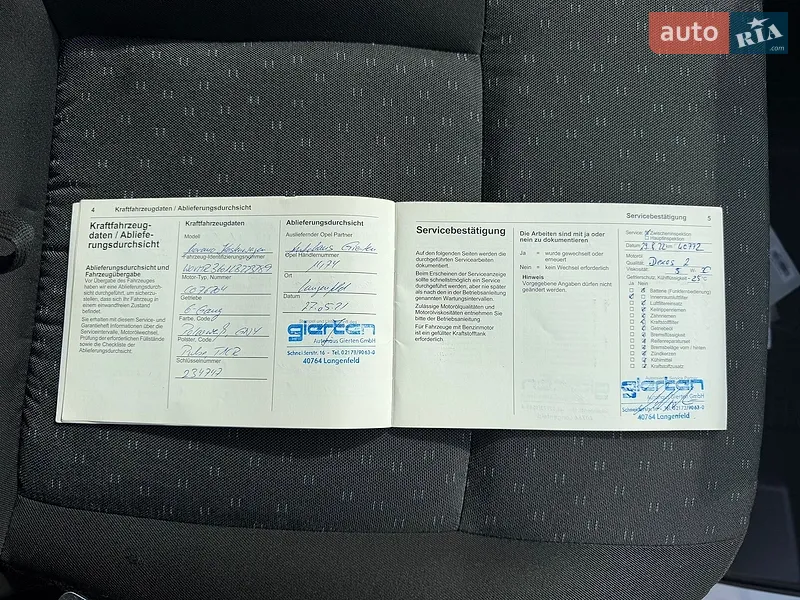 auto RIA
.com
4 Kraftfahrzeugdaten / Ablieferungsdurchsicht
Kraftfahrzeug-
daten / Abliefe-
rungsdurchsicht
Ablieferungsdurchsicht und
Fahrzeugübergabe
Vor Übergabe des Fahrzeuges
haben wir eine Ablieferungsdurch-
sicht durchgeführt, um sicherzu-
stellen, dass sich Ihr Fahrzeug in
einem einwandfreien Zustand
befindet.
Sie erhalten mit diesem Service- und
Garantieheft Informationen über die
Serviceintervalle, Motorölwechsel,
Prüfung der erforderlichen Füllstände
sowie die Checkliste der
Ablieferungsdurchsicht.
Kraftfahrzeugdaten
Modell
Fahrzeug-Identifizierungsnummer
Motor-Typ, Nummer
Getriebe
Farbe, Code
Polster, Code
Schlüsselnummer
234747
Ablieferungsdurchsicht
Ausliefernder Opel Partner
Autohaus Gierten
Opel Händlernummer
Ort
Langenfeld
Datum
gierten
Autohaus Gierten GmbH
40764 Langenfeld
Servicebestätigung 5
Servicebestätigung
Auf den folgenden Seiten werden die
durchgeführten Servicearbeiten
dokumentiert.
Beim Erscheinen der Serviceanzeige
sollte schnellstmöglich ein Service
durchgeführt werden, aber nie später
als nach den in der Betriebsanleitung
genannten Wartungsintervallen.
Zulässige Motorölqualitäten und
Motorölviskositäten entnehmen Sie
bitte der Betriebsanleitung
Für Fahrzeuge mit Benzinmotor
ist ein gefüllter Kraftstofftank
erforderlich.
Die Arbeiten sind mit ja oder
nein zu dokumentieren
Ja = wurde gewechselt oder
erneuert
Nein = kein Wechsel erforderlich
Hinweis
Vorgegebene Angaben dürfen nicht
geändert werden.
Service: Zwischeninspektion
Hauptinspektion
Datum
Motoröl:
Qualität: Dexos 2
Viskosität: 5 W
Ja Nein
Batterie (Funktenfernbedienung)
Innenraumluftfilter
Luftfiltereinsatz
Keilrippenriemen
Zahnriemen
Kraftstofffilter
Getriebeöl
Bremsflüssigkeit
Reifenreparaturset
Bremsbeläge vorn / hinten
Zündkerzen
Kühlmittel
Kraftstoffzusatz
gierten
Autohaus Gierten GmbH
40764 Langenfeld